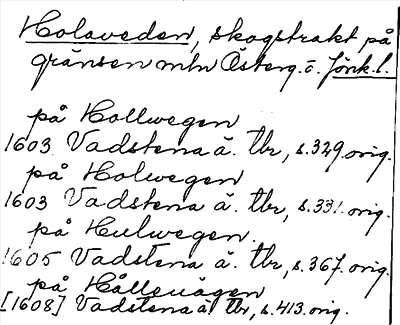 Holaveden, skogstrakt på
gränsen mln Österg. o. Jönk. l.
på Hollwegen
1603 Vadstena ä. Tbr, s. 329. orig.
på Holwegen
1603 Vadstena ä. Tbr, s. 331. orig.
på Hulwegen
1605 Vadstena ä. Tbr, s. 367. orig.
på Hålleuägen
[1608] Vadstena ä Tbr, s. 413. orig.